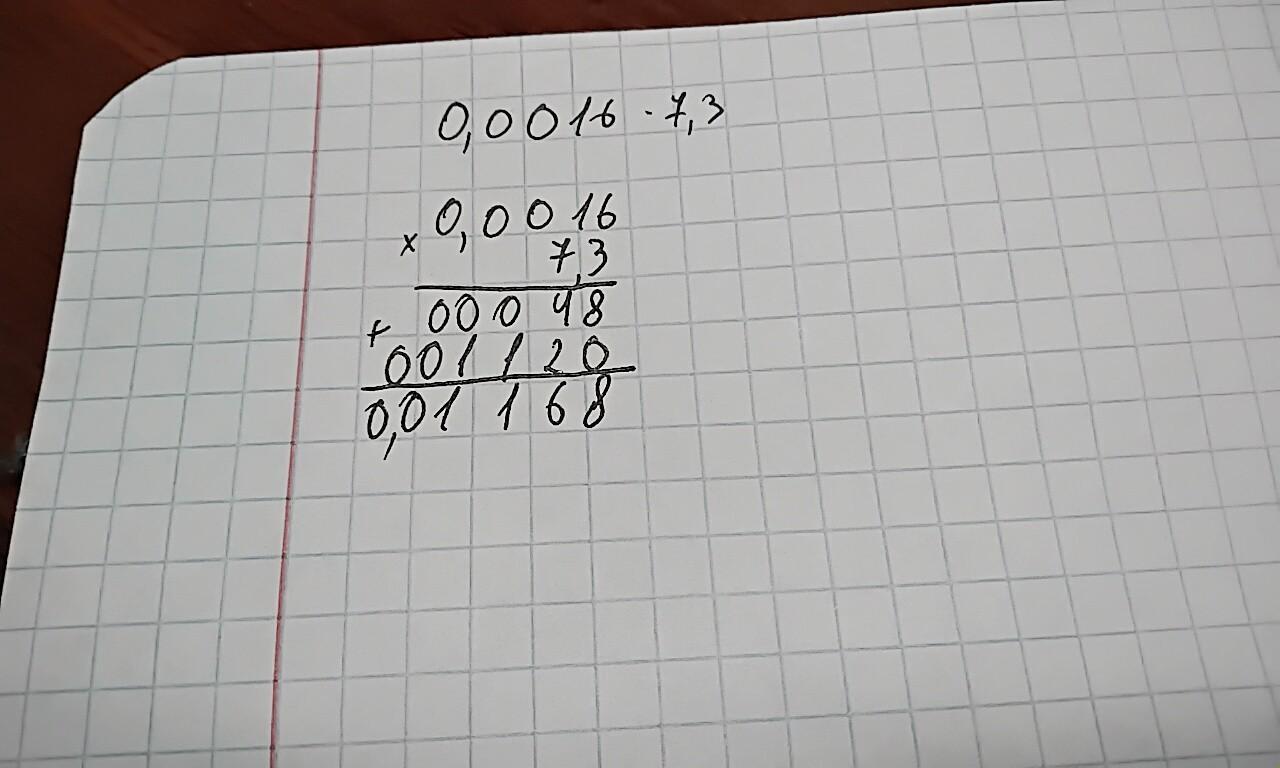 0,0016 · 7,3
× 0,0016
7,3
+ 00048
001120
0,01168